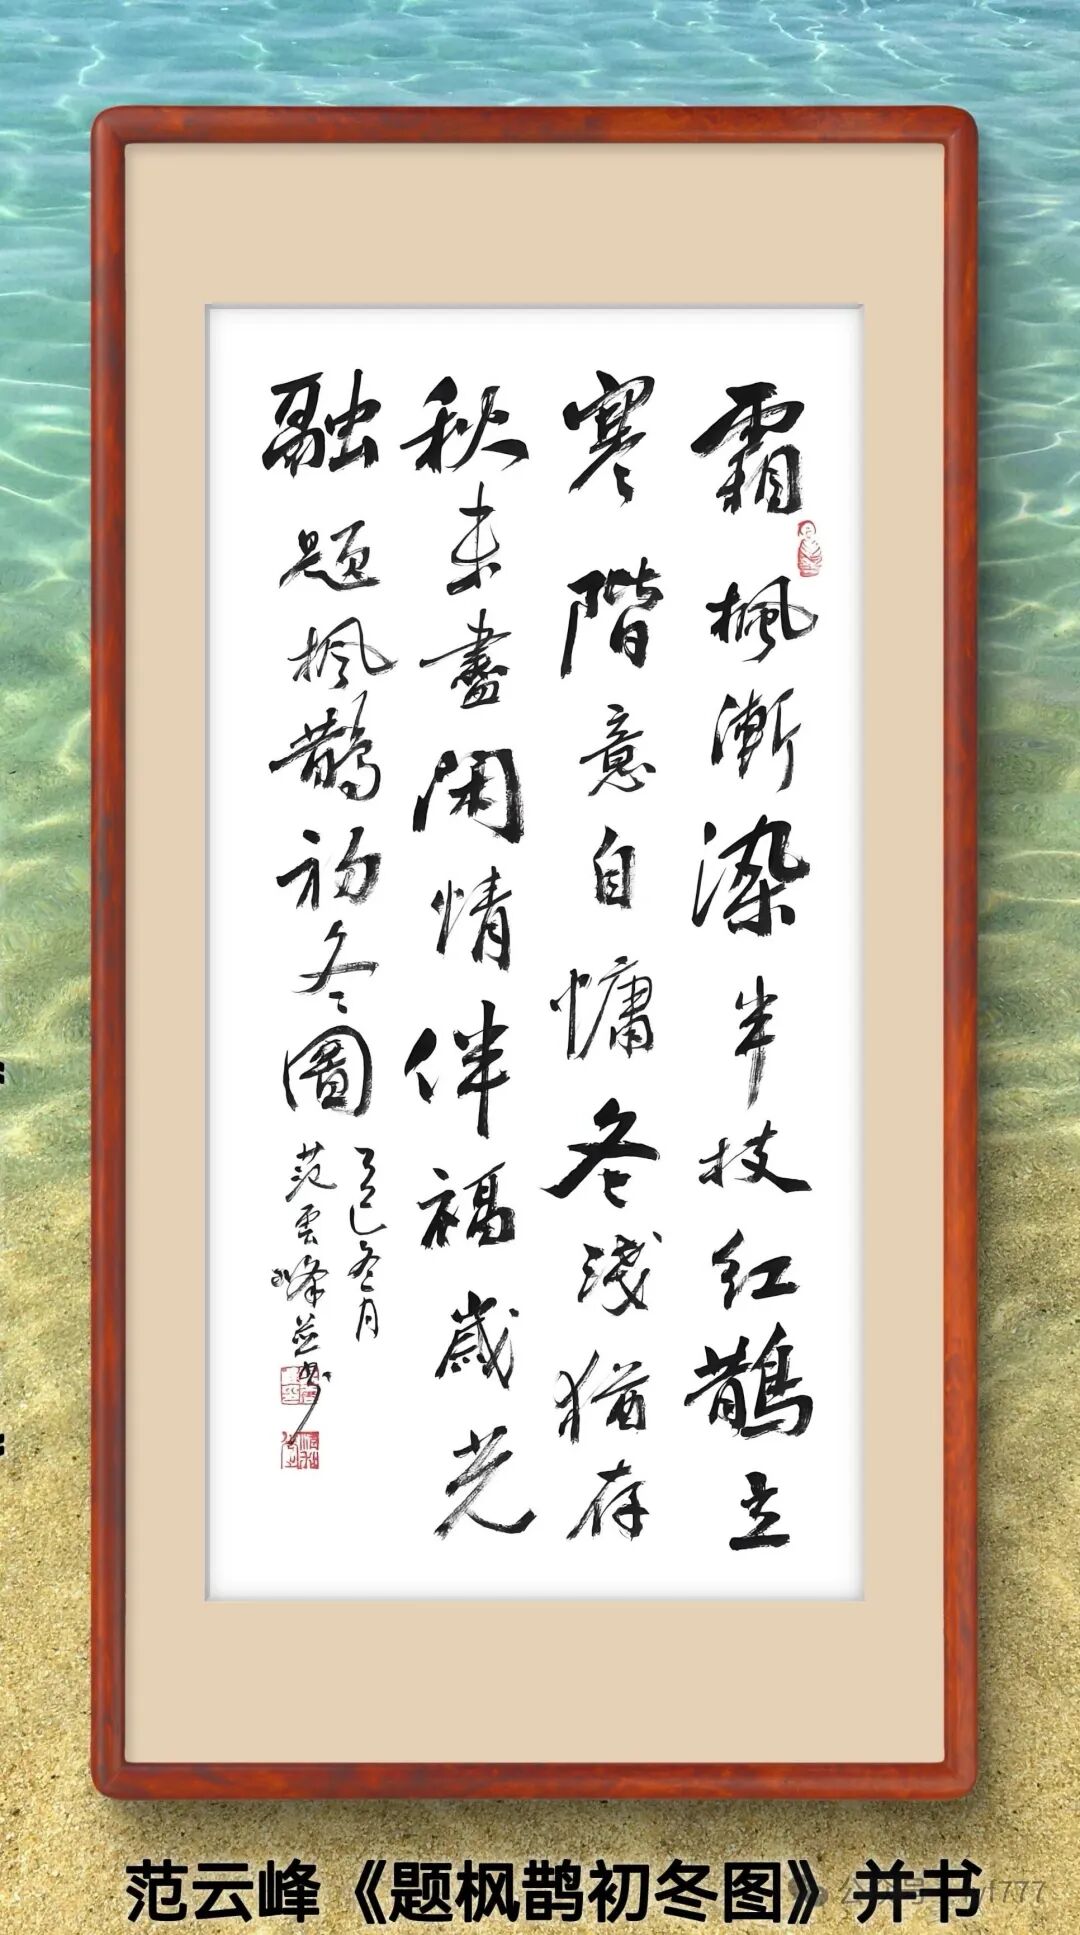 霜枫漸染半技红鵲立
寒階意自慵冬淺猶存
秋未盡閑情伴福歲光
融题枫鵲初冬圖
乙巳冬月
范雲峰并书
范云峰《题枫鹊初冬图》并书